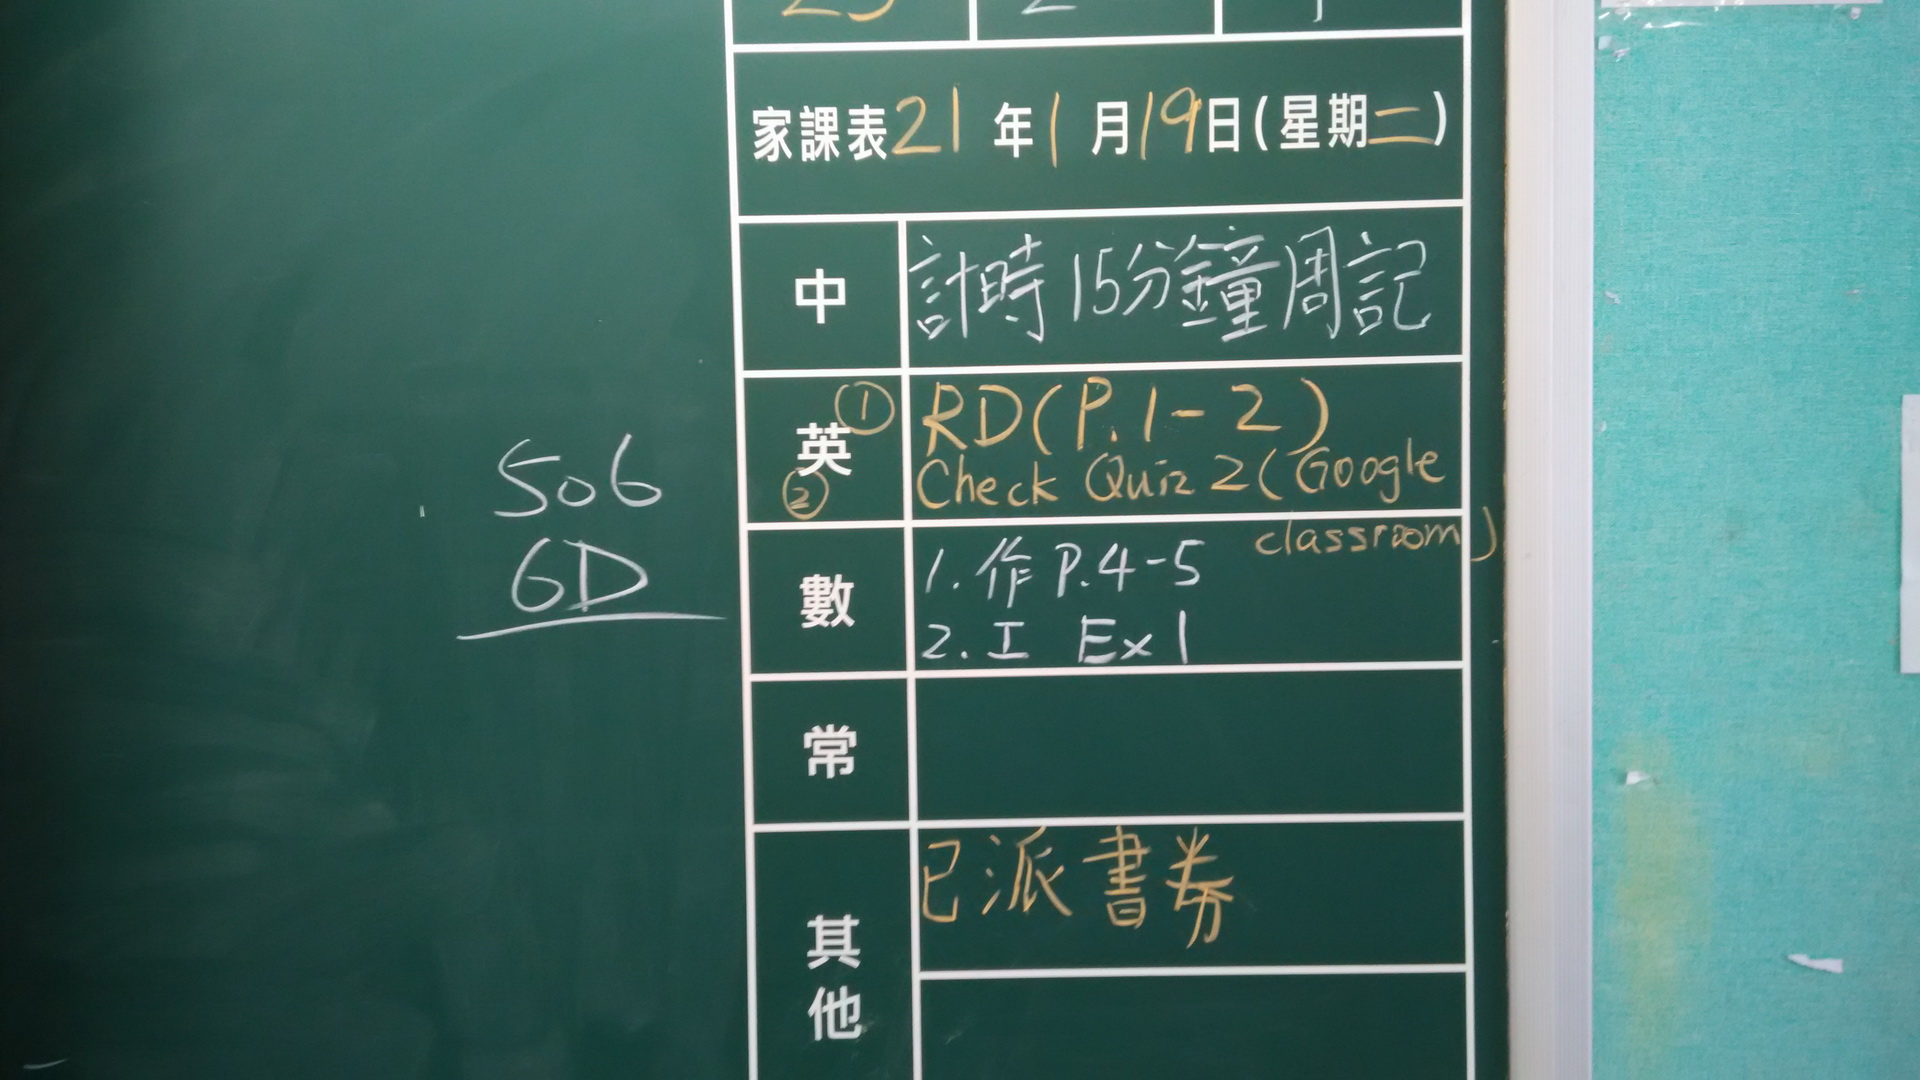 家課表21年1月19日(星期二)
中 計時15分鐘周記
英 ① RD(P.1-2)
② Check Quiz 2(Google
classroom)
數 1. 作 P.4-5
2. 工 Ex1
常
其他 已派書券
506
6D